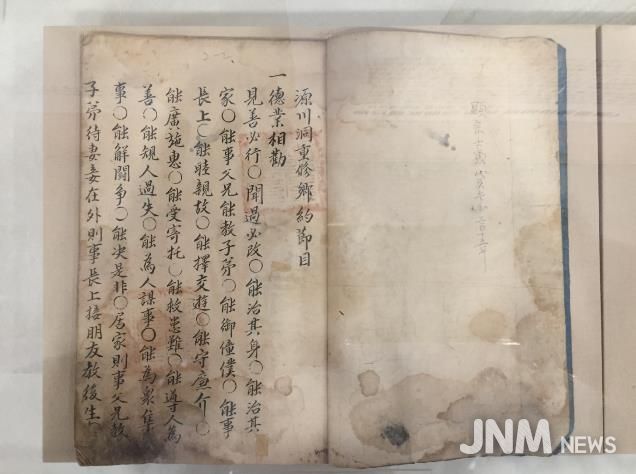 源川洞重修鄉約節目
一德業相勸
見善必行〇聞過必改〇能治其身〇能治其
家〇能事父兄能教子弟〇能御僮僕〇能事
長上〇能睦親故〇能擇交遊〇能守廉介〇
能廣施惠〇能受寄托〇能救患難〇能導人為
善〇能規人過失〇能為人謀事〇能為衆集
事〇能解鬪爭〇能决是非〇居家則事父兄教
子弟待妻妾在外則事長上接朋友教後生
JNM NEWS